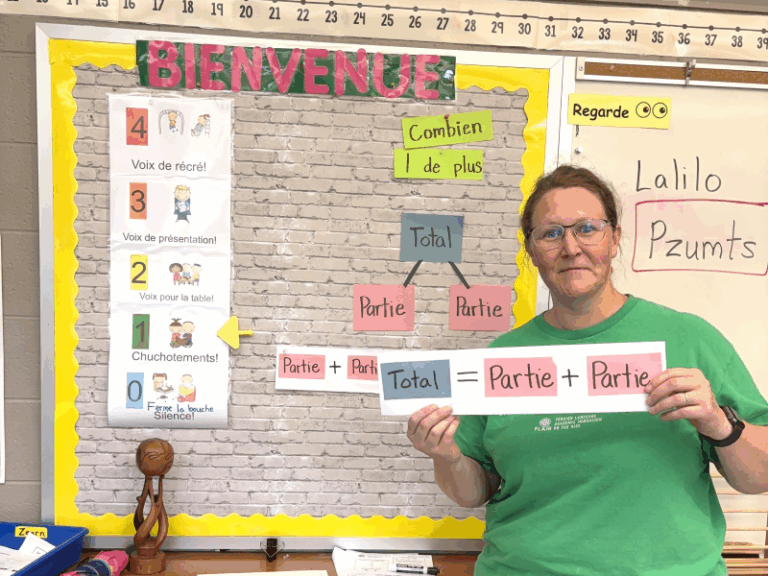 15 16 17 18 19 20 21 22 23 24 25 26 27 28 29 30 31 32 33 34 35 36 37 38 39
BIENVENUE
4
Voix de récré!
3
Voix de présentation!
2
Voix pour la table!
1
Chuchotements!
0
Ferme la bouche
Silence!
Combien
1 de plus
Total
Partie Partie
Partie + Parti
Total = Partie + Partie
Regarde
Lalilo
Pzumts
Zearn
PLAIN